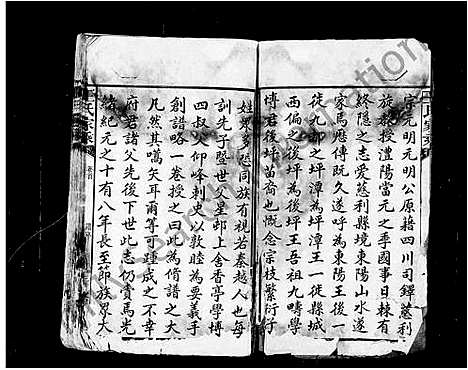 宗元明元明公原籍四川司鐸慈利
旋教授澧陽當元之季國事日棘有
終隱之志愛慈利縣境東陽山水遂
家焉應傳既久遂呼為東陽王後一
徙九都之坪潭為坪潭王一徙縣城
西偏之後坪為後坪王吾祖九疇學
博君後坪苗裔也慨念宗枝繁衍子
姓眾多恐同族有視若秦越人也每
訓先子暨世父星卹上舍香亭學博
四叔父仰峰刺史以敦睦為要義手
創譜略一卷授之曰此為脩譜之大
凡然其嚆矢耳爾等可踵成之不幸
府君諸父先後下世此志仍賫焉光
緒紀元之十有八年長至節族眾大
氏家乘
卷首